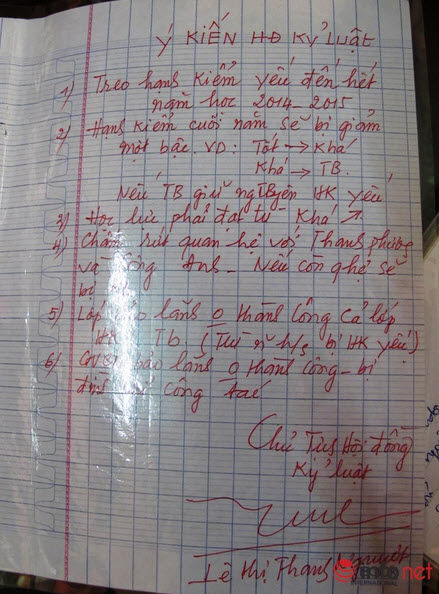 Ý KIẾN HĐ KỶ LUẬT
1) Treo hạnh kiểm yếu đến hết
năm học 2014-2015
2) Hạnh kiểm cuối năm sẽ bị giảm
một bậc. VD: Tốt → Khá
Khá → TB.
Nếu TB giữ nguyên HK yếu
3) Học lực phải đạt từ Khá ↗
4) Chấm rứt quan hệ với Thanh phương
và Anh - Nếu còn sẽ
bị
5) Lớp lăng 0 thành công cả lớp
HK Tb. (h/s bị HK yếu)
6) GVCN lăng 0 thành công - bị
công tác
Chủ Tịch Hội đồng
Kỷ luật
Lê Thị Thanh Nguyệt
.net
INTERNATIONAL